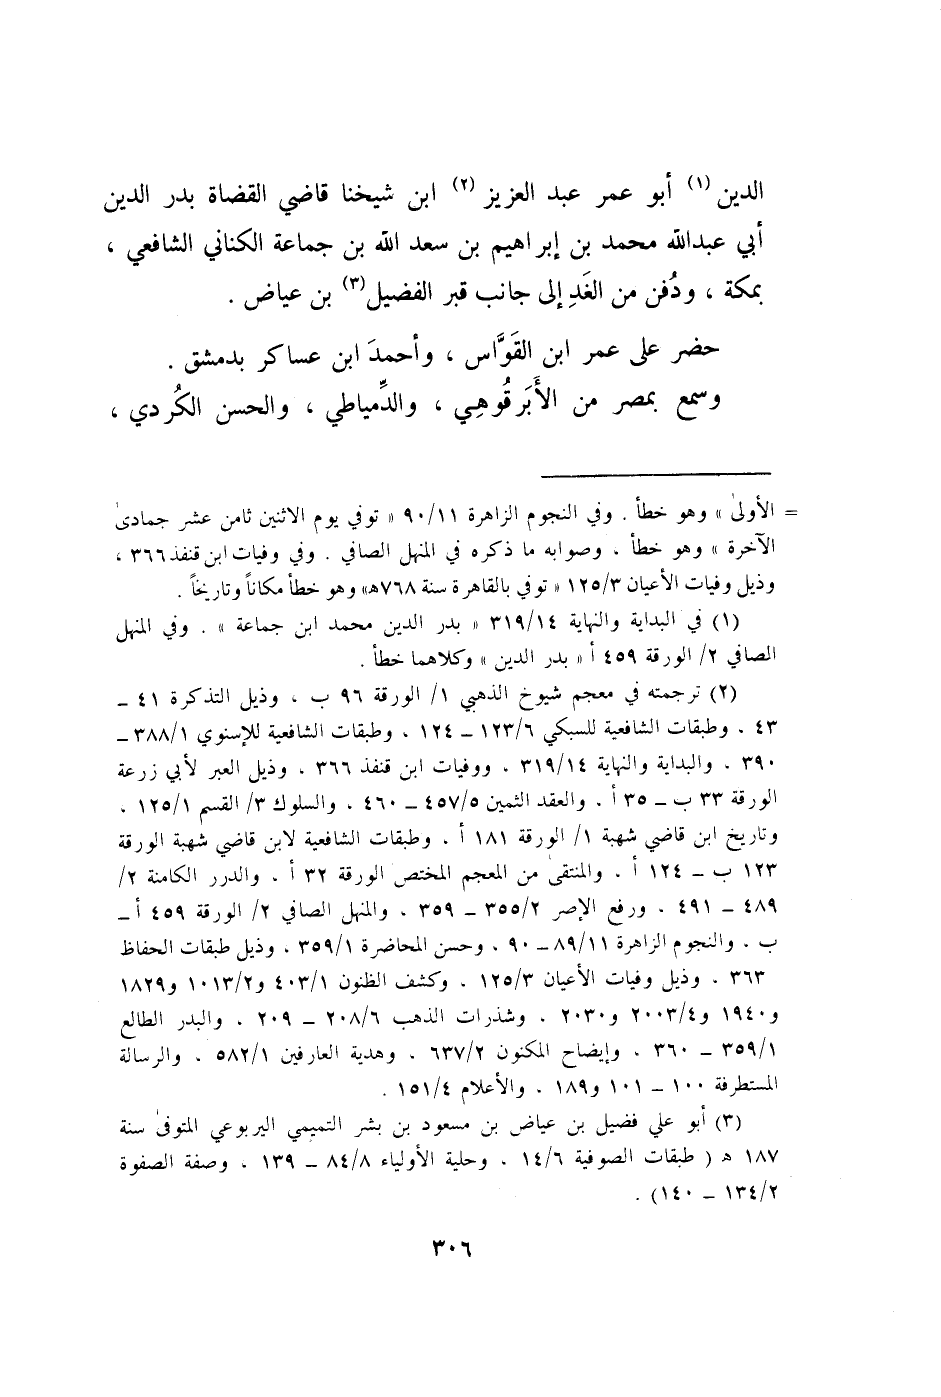 الدين (١) أبو عمر عبد العزيز (٢) ابن شيخنا قاضي القضاة بدر الدين
أبي عبدالله محمد بن إبراهيم بن سعد الله بن جماعة الكناني الشافعي ،
بمكة ، ودُفن من الغَدِ إلى جانب قبر الفضيل(٣) بن عياض .
حضر على عمر ابن القَوَّاس ، وأحمدَ ابن عساكر بدمشق .
وسمع بمصر من الأَبَرقُوهِي ، والدِّمياطي ، والحسن الكُردي ،
= الأولىٰ » وهو خطأ . وفي النجوم الزاهرة ٩٠/١١ « توفي يوم الاثنين ثامن عشر جمادىٰ
الآخرة » وهو خطأ ، وصوابه ما ذكره في المنهل الصافي . وفي وفيات ابن قنفذ ٣٦٦ ،
وذيل وفيات الأعيان ١٢٥/٣ « توفي بالقاهرة سنة ٧٦٨هـ» وهو خطأ مكاناً وتاريخاً .
(١) في البداية والنهاية ٣١٩/١٤ « بدر الدين محمد ابن جماعة » . وفي المنهل
الصافي ٢/ الورقة ٤٥٩ أ « بدر الدين » وكلاهما خطأ .
(٢) ترجمته في معجم شيوخ الذهبي ١/ الورقة ٩٦ ب ، وذيل التذكرة ٤١ ــ
٤٣ ، وطبقات الشافعية للسبكي ١٢٣/٦ ــ ١٢٤ ، وطبقات الشافعية للإسنوي ٣٨٨/١ ــ
٣٩٠ ، والبداية والنهاية ٣١٩/١٤ ، ووفيات ابن قنفذ ٣٦٦ ، وذيل العبر لأبي زرعة
الورقة ٣٣ ب ــ ٣٥ أ ، والعقد الثمين ٤٥٧/٥ ــ ٤٦٠ ، والسلوك ٣/ القسم ١٢٥/١ ،
وتاريخ ابن قاضي شهبة ١/ الورقة ١٨١ أ ، وطبقات الشافعية لابن قاضي شهبة الورقة
١٢٣ ب ــ ١٢٤ أ ، والمنتقىٰ من المعجم المختص الورقة ٣٢ أ ، والدرر الكامنة ٢/
٤٨٩ ــ ٤٩١ ، ورفع الإصر ٣٥٥/٢ ــ ٣٥٩ ، والمنهل الصافي ٢/ الورقة ٤٥٩ أ ــ
ب ، والنجوم الزاهرة ٨٩/١١ ــ ٩٠ ، وحسن المحاضرة ٣٥٩/١ ، وذيل طبقات الحفاظ
٣٦٣ ، وذيل وفيات الأعيان ١٢٥/٣ ، وكشف الظنون ٤٠٣/١ و١٠١٣/٢ و١٨٢٩
و١٩٤٠ و٢٠٠٣/٤ و٢٠٣٠ ، وشذرات الذهب ٢٠٨/٦ ــ ٢٠٩ ، والبدر الطالع
٣٥٩/١ ــ ٣٦٠ ، وإيضاح المكنون ٦٣٧/٢ ، وهدية العارفين ٥٨٢/١ ، والرسالة
المستطرفة ١٠٠ ــ ١٠١ و١٨٩ ، والأعلام ١٥١/٤ .
(٣) أبو علي فضيل بن عياض بن مسعود بن بشر التميمي اليربوعي المتوفىٰ سنة
١٨٧ هـ ( طبقات الصوفية ١٤/٦ ، وحلية الأولياء ٨٤/٨ ــ ١٣٩ ، وصفة الصفوة
١٣٤/٢ ــ ١٤٠) .
٣٠٦